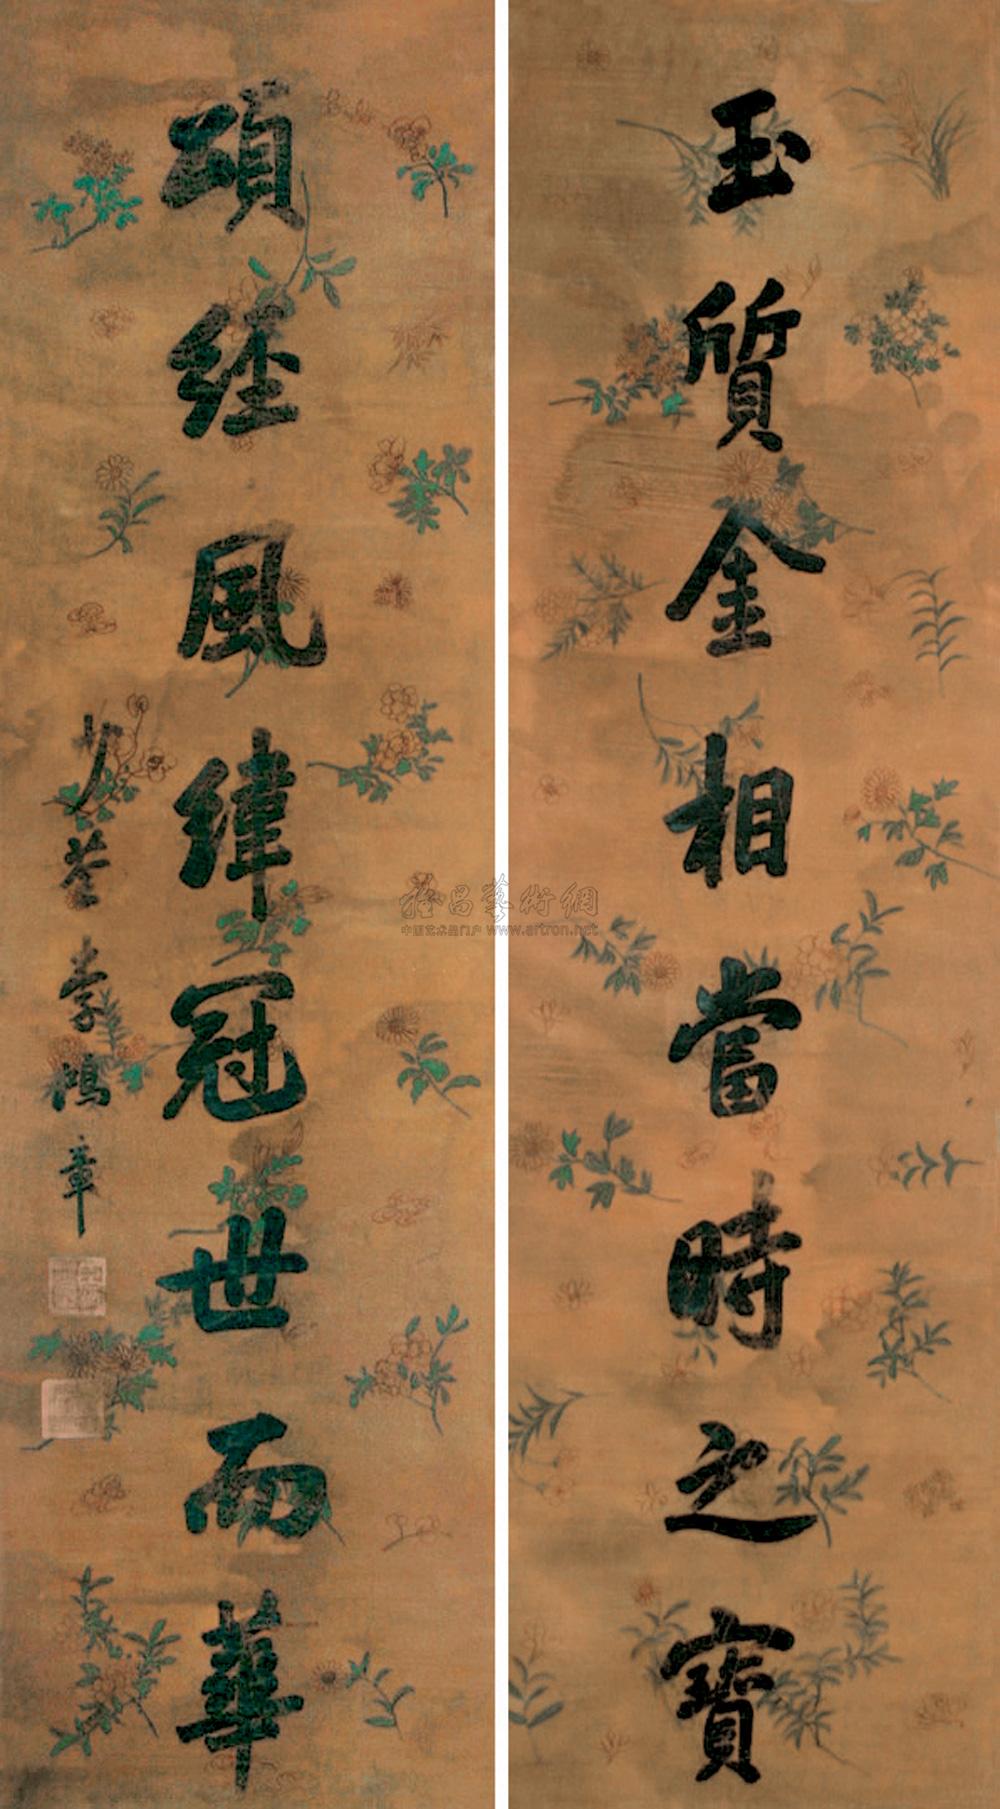 玉質金相當時之寶
頌經風緯冠世而華
少荃李鴻章
雅昌藝術網
中国艺术品门户 www.artron.net